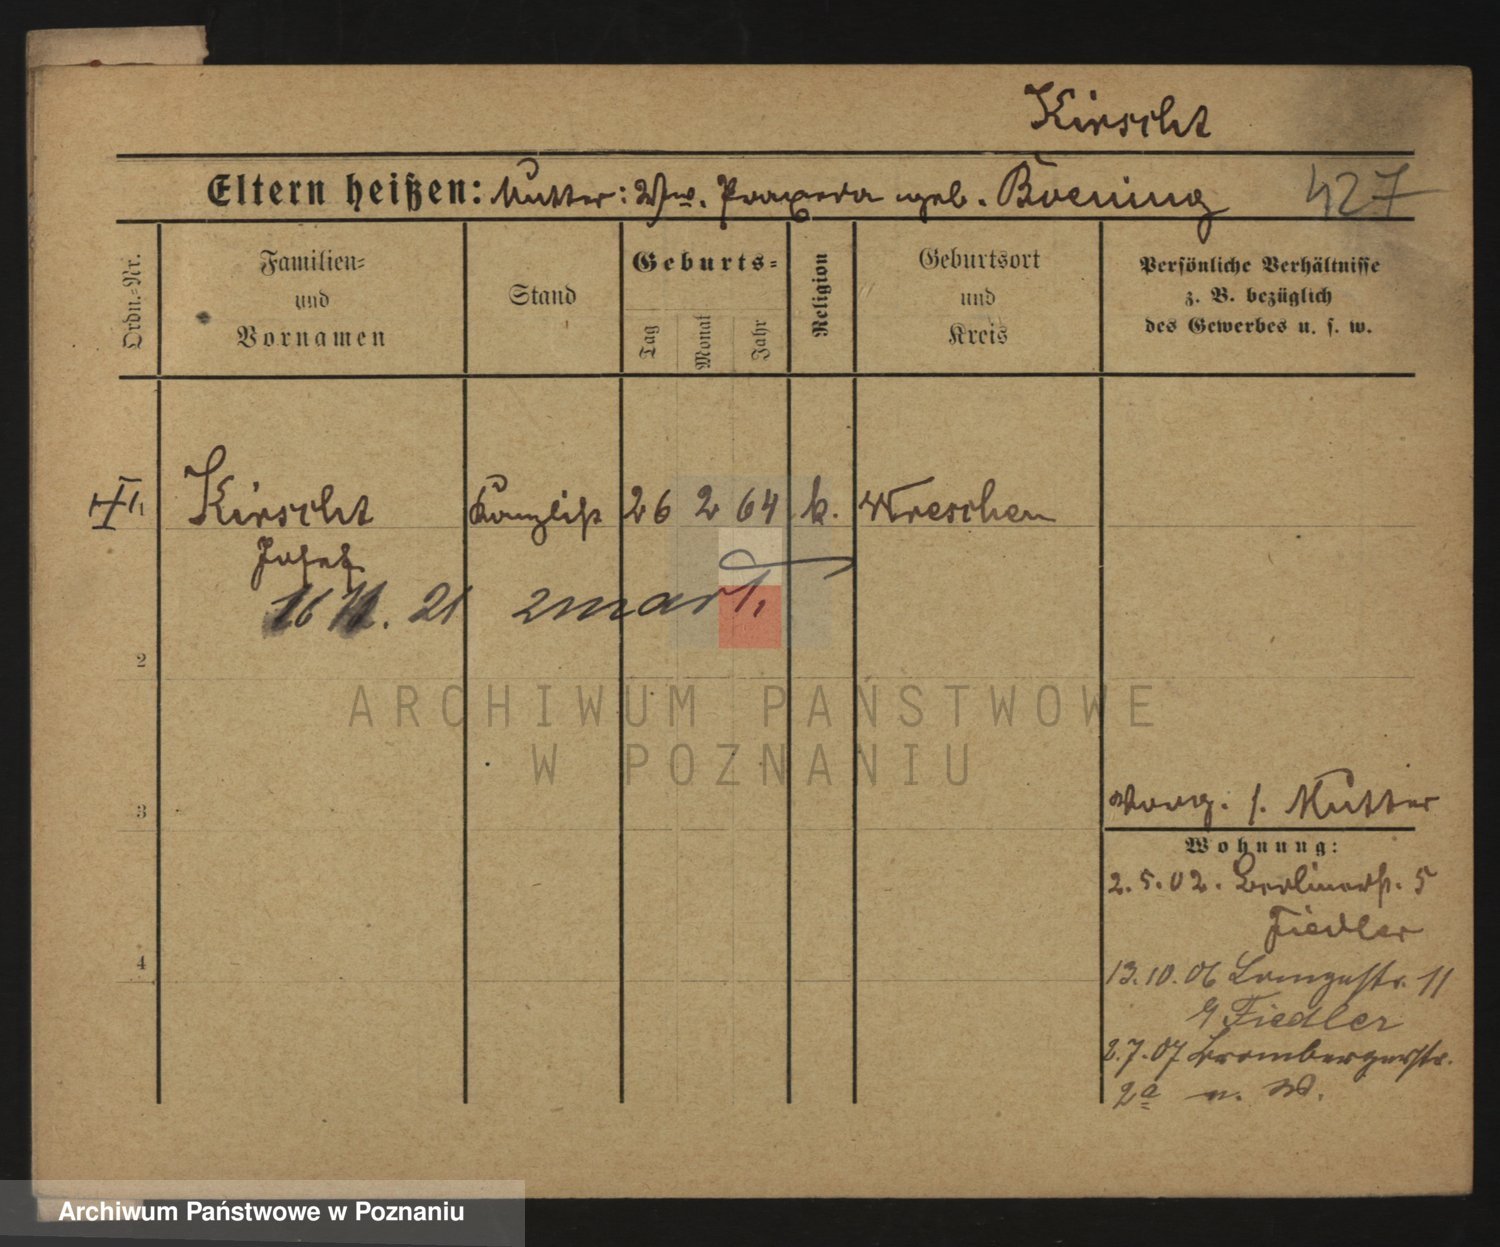 Kirscht
Eltern heißen: Mutter: Ww. Praxeda geb. Boening 427
Ordn.-Nr.
Familien-
und
Vornamen
Stand
Geburts-
Tag
Monat
Jahr
Religion
Geburtsort
und
Kreis
Persönliche Verhältnisse
z. B. bezüglich
des Gewerbes u. s. w.
Kirscht Kanzlist 26 2 64 k. Wreschen
Josef
16 11. 21 zmarł
2
ARCHIWUM PAŃSTWOWE
W POZNANIU
3
Vorg. s. Mutter
Wohnung:
2.5.02. Berlinerst. 5
Fiedler
4
13.10.06 Langestr. 11
Fiedler
2.7.07 Brombergerstr.
2a
Archiwum Państwowe w Poznaniu